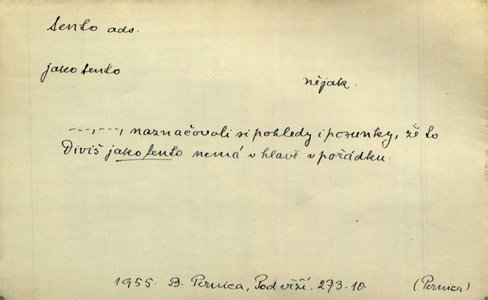 sento adv.
jako sento
nějak.
—,—, naznačovali si pohledy i posunky, že to
Diviš jako sento nemá v hlavě v pořádku.
1955 B. Pernica, Pod věží. 273.10. (Pernica)